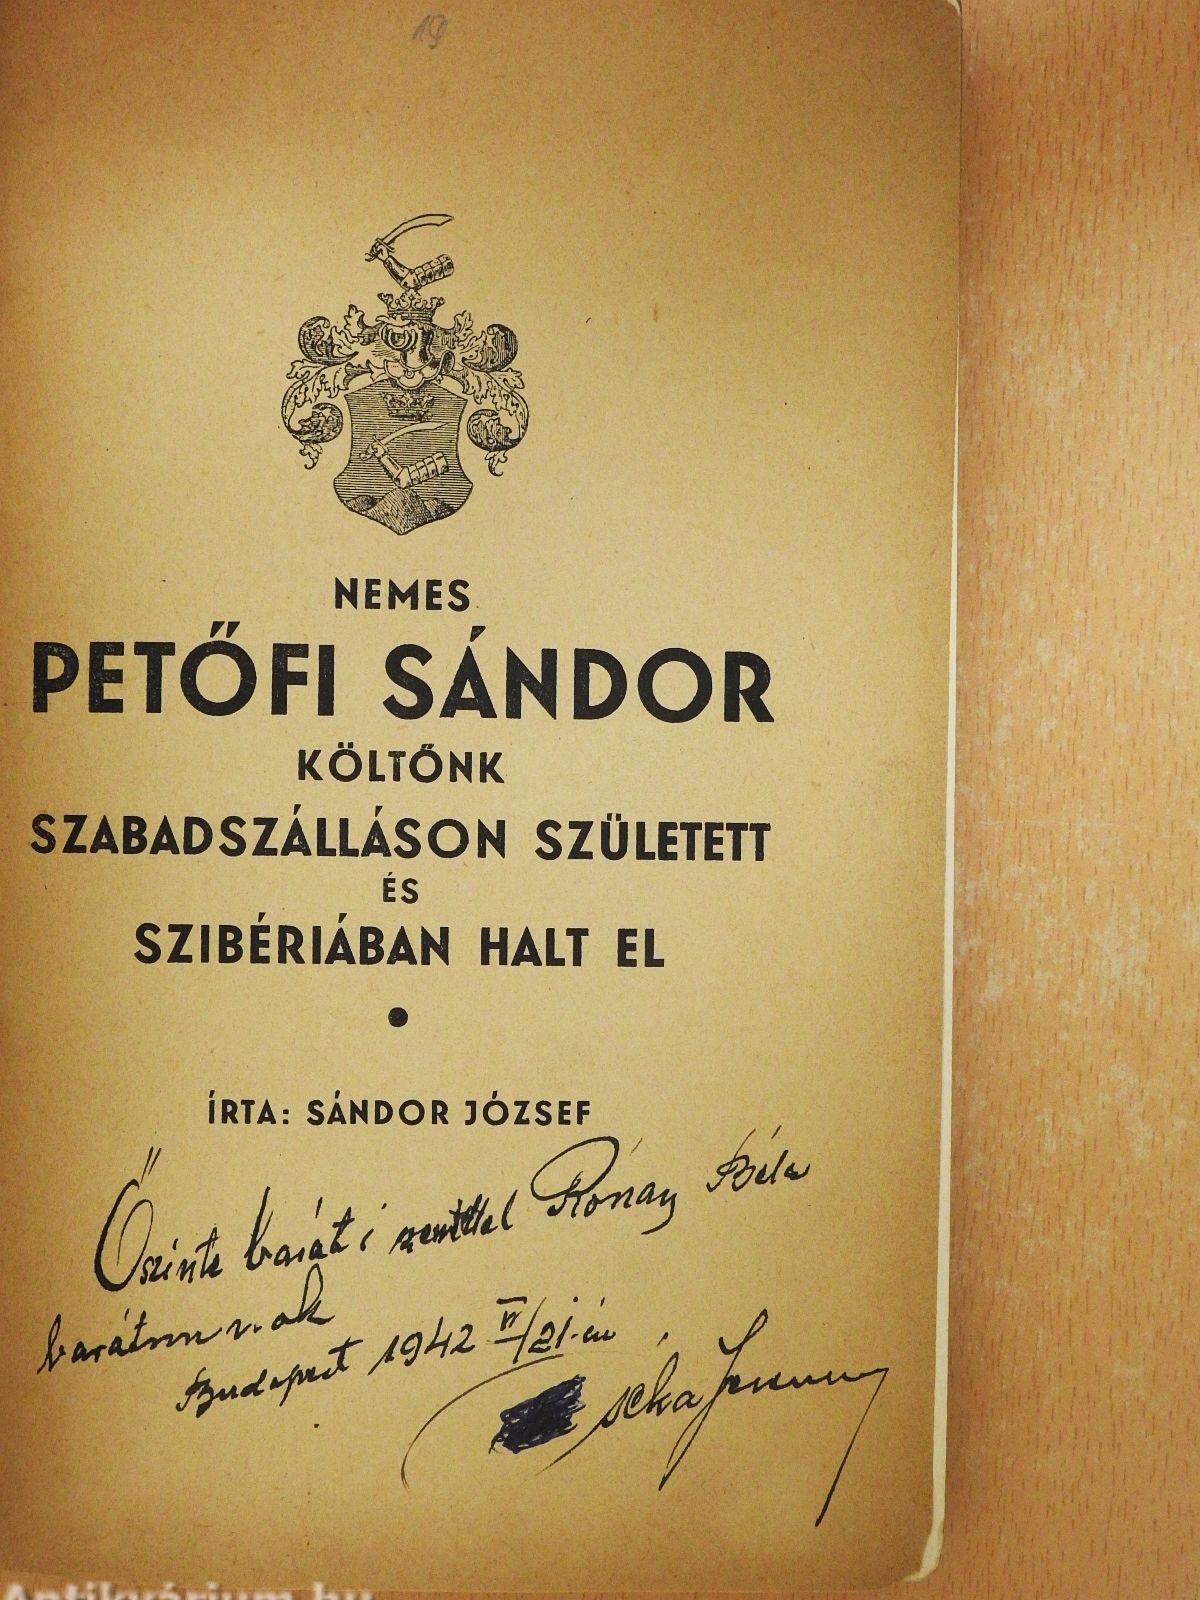 19
NEMES
PETŐFI SÁNDOR
KÖLTŐNK
SZABADSZÁLLÁSON SZÜLETETT
ÉS
SZIBÉRIÁBAN HALT EL
ÍRTA: SÁNDOR JÓZSEF
Őszinte baráti Rónay Béla
barátomnak
Budapest 1942 VI/21-én
Antikvárium.hu